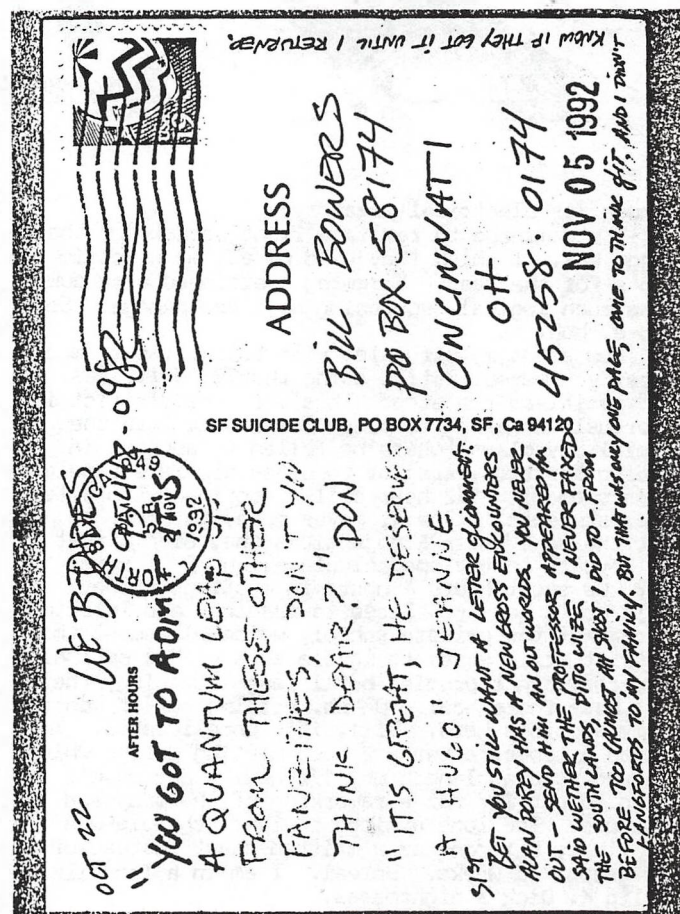 OCT 22 WE B
AFTER HOURS
"YOU'GOT TO ADMIT
A QUANTUM LEAP UP
FROM THESE OTHER
FANZINES, DON'T YOU
THINK DEAR? DON
"IT'S GREAT, HE DESERVES
A HUGO JEANNE
BET YOU STILL WANT A LETTER of COMMENT.
ALAN DOREY HAS A NEW GROSS ENCOUNTERS
OUT - SEND HIM AN OUTWORLDS. YOU NEVER
SAID WETHER THE PROFFESSOR APPEARED
THE SOUTHLANDS, DITTO WIZE. I NEVER FAXED
BEFORE TOO (ALMOST SHOT I DID TO - FROM
LANGFORDS TO MY FAMILY. BUT THAT WAS ONLY ONE PAGE, COME TO THINK of IT, AND I DIDN'T
KNOW IF THEY GOT IT UNTIL I RETURNED.
NORTH BAY CA 949
PM
2 NOV
1992
SF SUICIDE CLUB, PO BOX 7734, SF, Ca 94120
ADDRESS
BILL BOWERS
PO BOX 58174
CINCINNATI
OH
45258-0174
NOV 05 1992